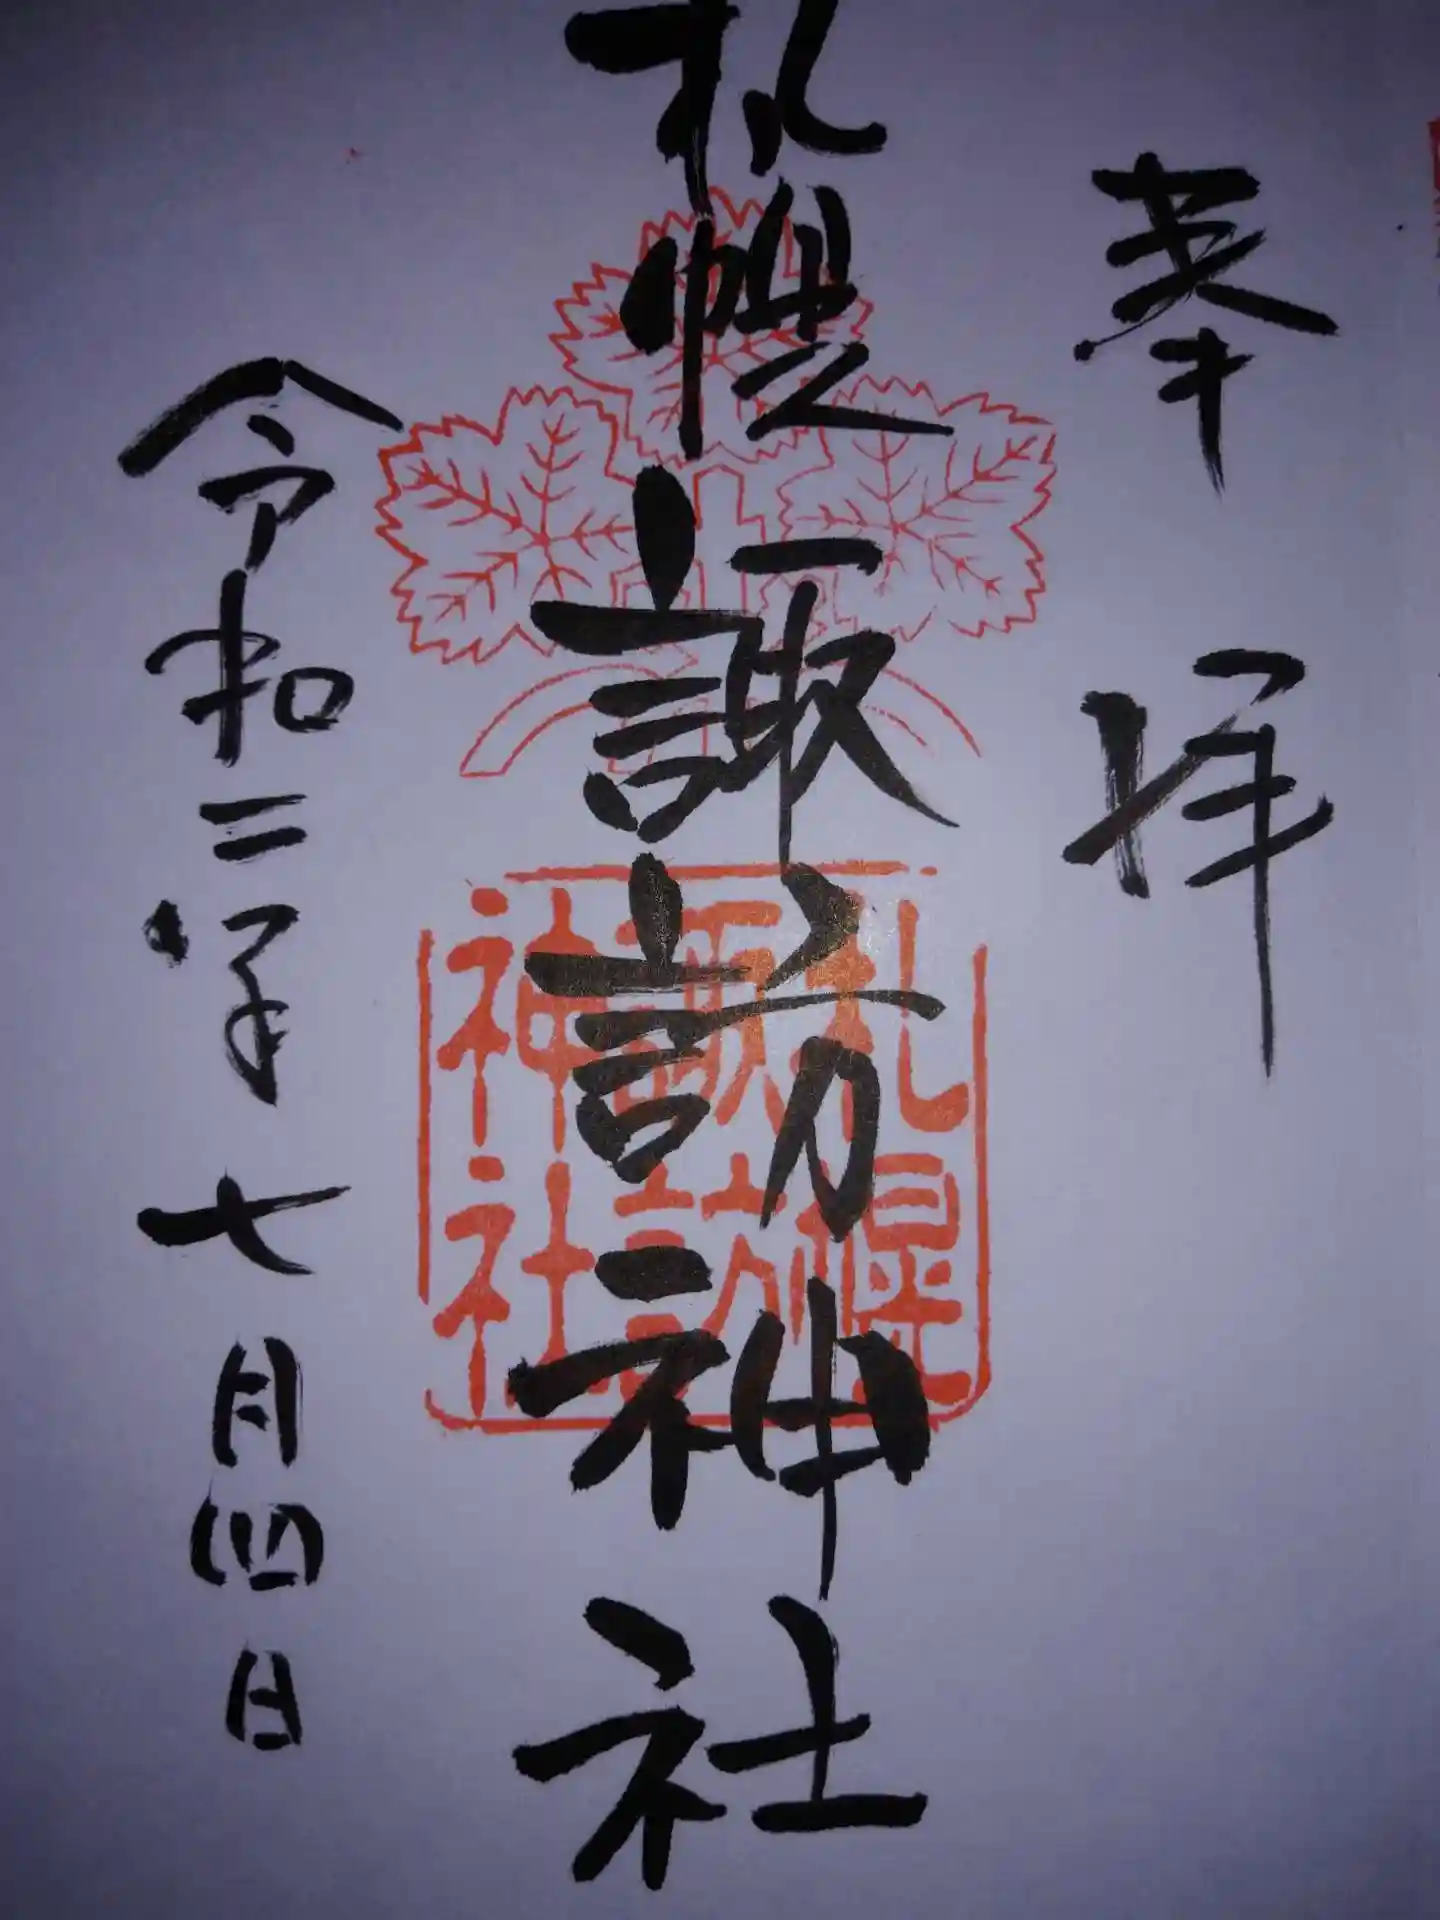 奉拝
札幌諏訪神社
札幌
諏訪
神社
令和二年七月四日